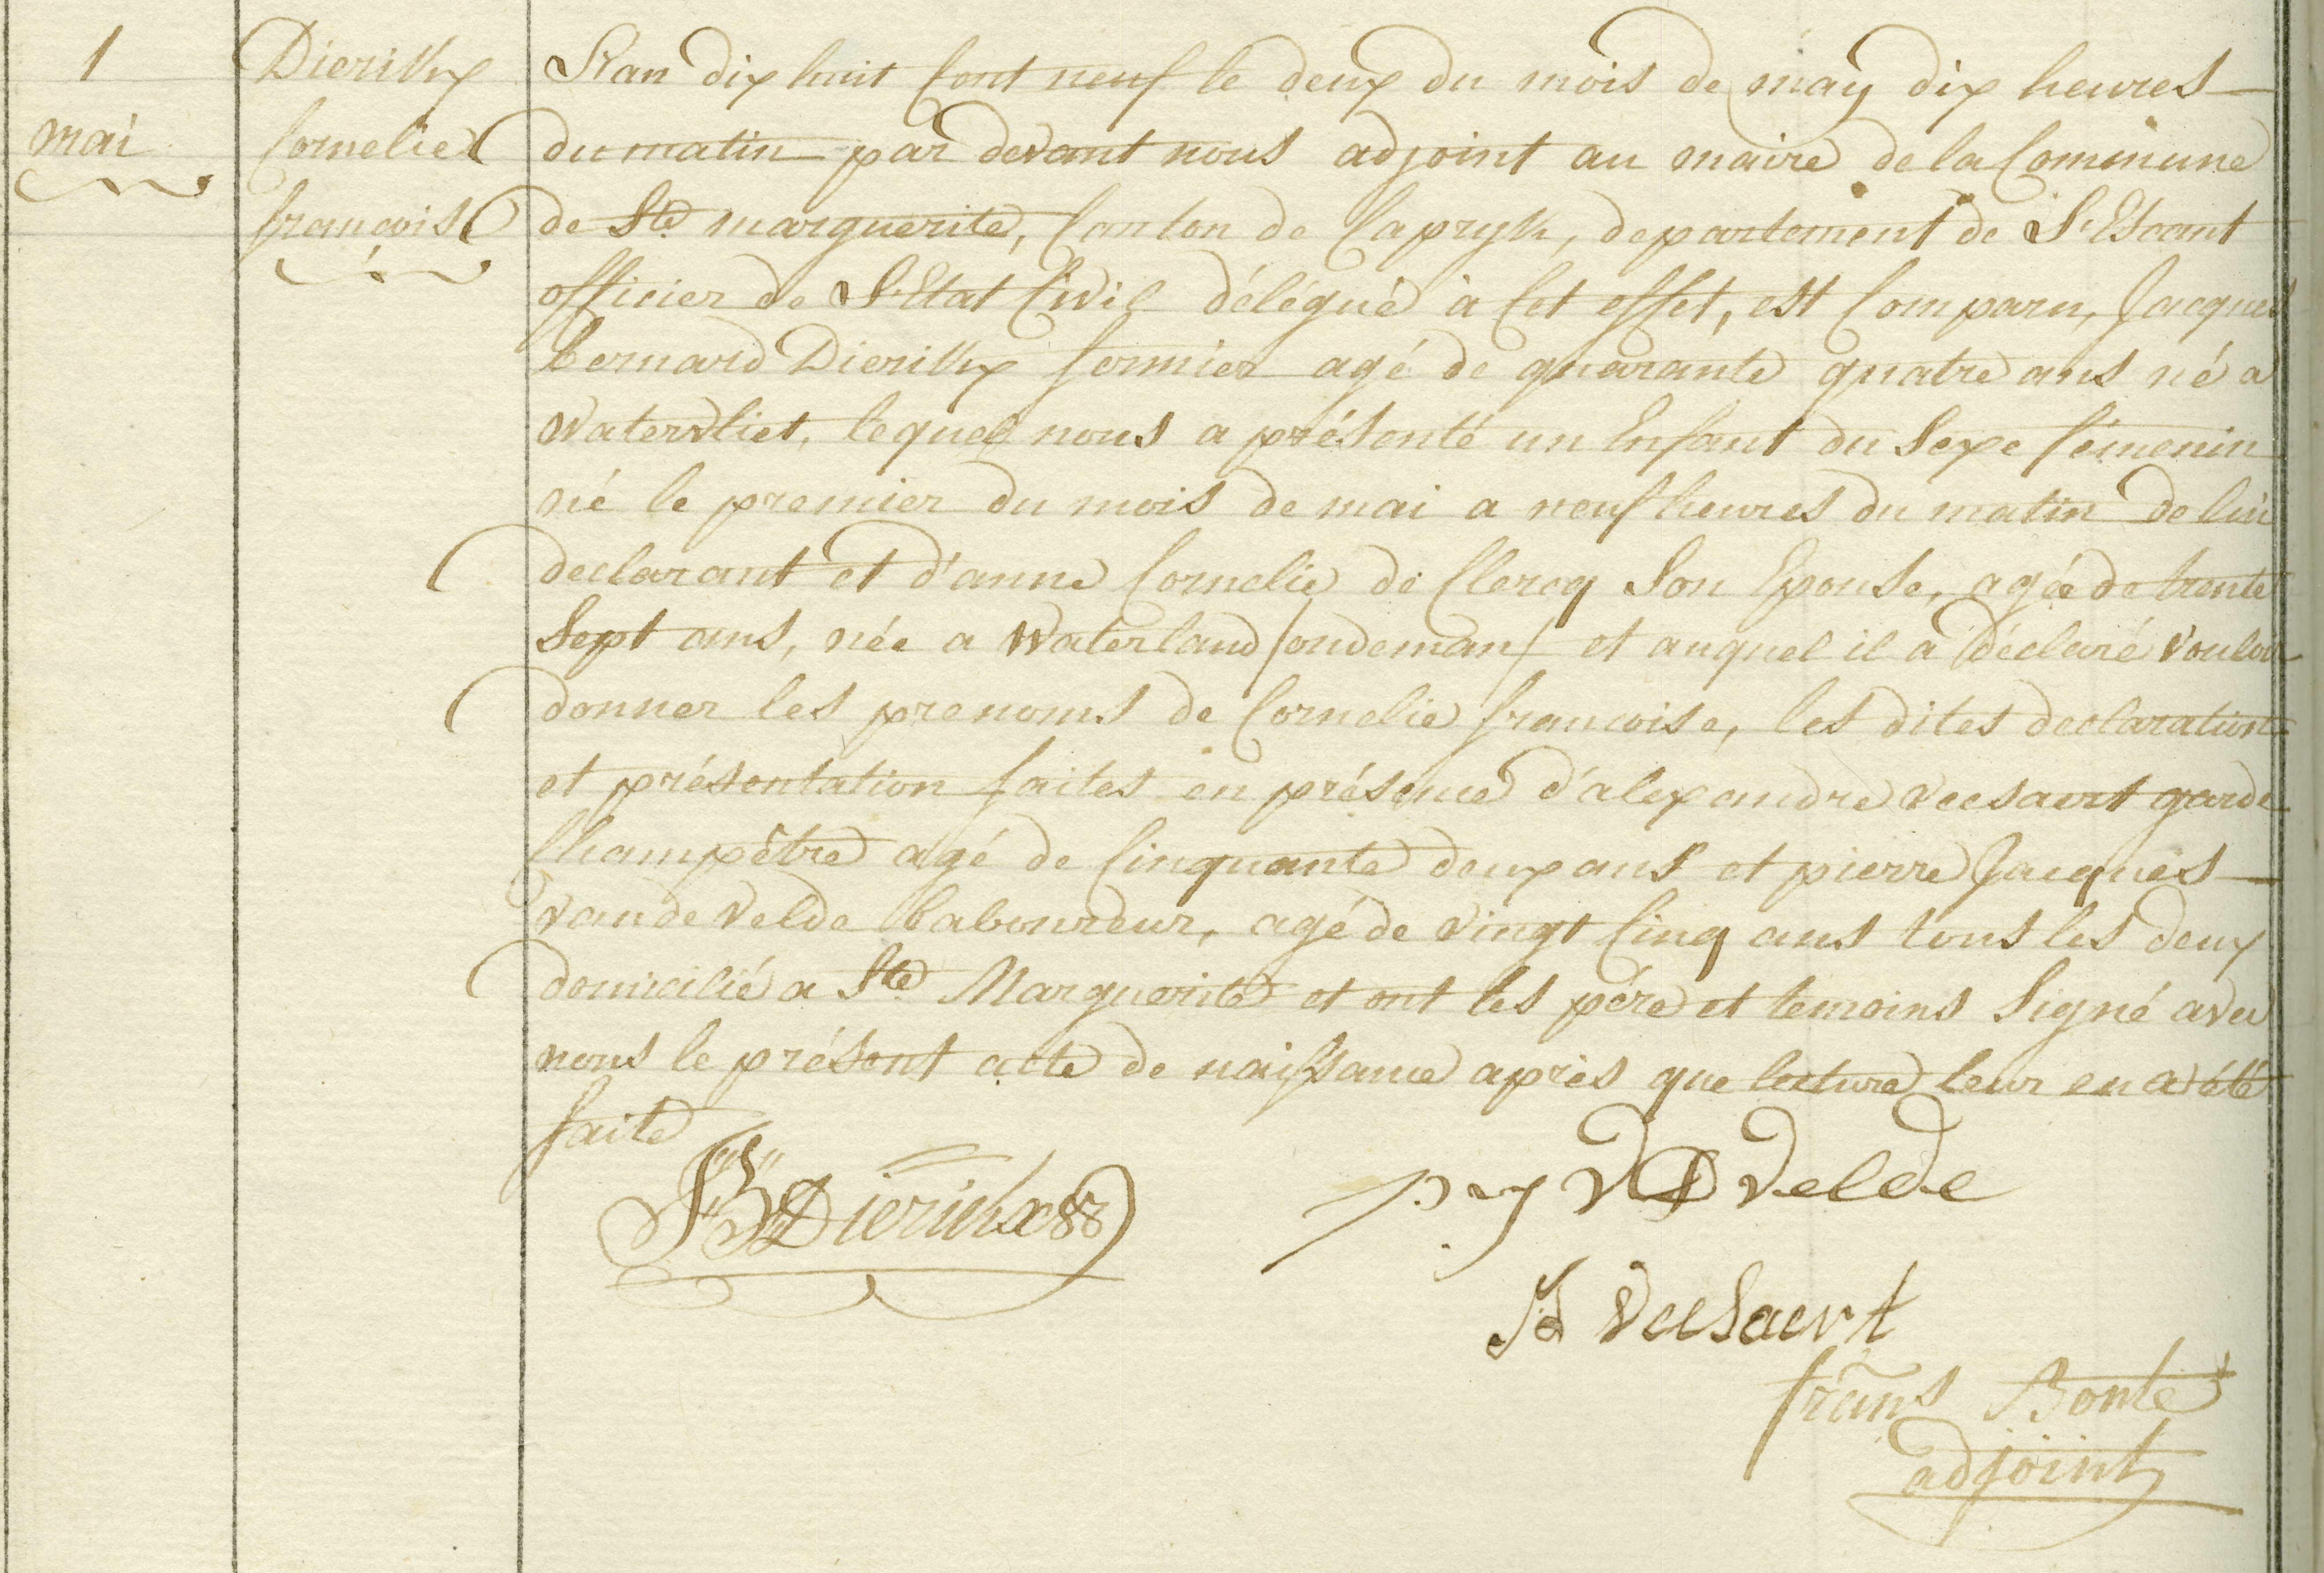 1
mai
Dierikx
Cornelie
françoise
L'an dix huit Cent neuf le deux du mois de may dix heures
du matin par devant nous adjoint au maire de la Commune
de Ste marguerite, Canton de Capryk, departement de L'Escaut
officier de L'Etat Civil délégué à Cet effet, est Comparu, Jacques
bernard Dierikx fermier agé de quarante quatre ans né a
Watervliet, lequel nous a présenté un Enfant du Sexe fémenin
né le premier du mois de mai a neuf heures du matin de lui
declarant et d'anne Cornelie de Clercq Son Epouse, agée de trente
Sept ans, née a Waterland /oudeman/ et auquel il a déclaré vouloir
donner les prenoms de Cornelie francoise, les dites declaration
et présentation faites en présence d'alexandre veesaert garde
Champêtre agé de Cinquante deux ans et pierre Jacques
van de velde laboureur, agé de vingt Cinq ans tous les deux
domicilié a Ste Marguerite et ont les père et temoins Signé avec
nous le présent acte de naissance après que lecture leur en a été
faite
JB Dierickx
p j VD Velde
Veesaert
frans Bonte
adjoint